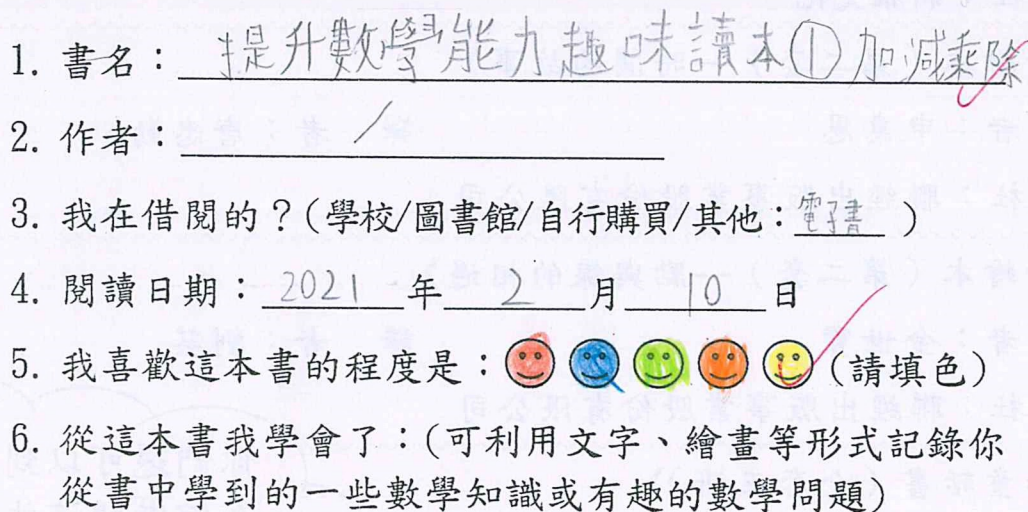 1. 書名：提升數學能力趣味讀本①加減乘除
2. 作者：/
3. 我在借閱的？(學校/圖書館/自行購買/其他：電子書)
4. 閱讀日期：2021年2月10日
5. 我喜歡這本書的程度是：(請填色)
6. 從這本書我學會了：(可利用文字、繪畫等形式記錄你
從書中學到的一些數學知識或有趣的數學問題)